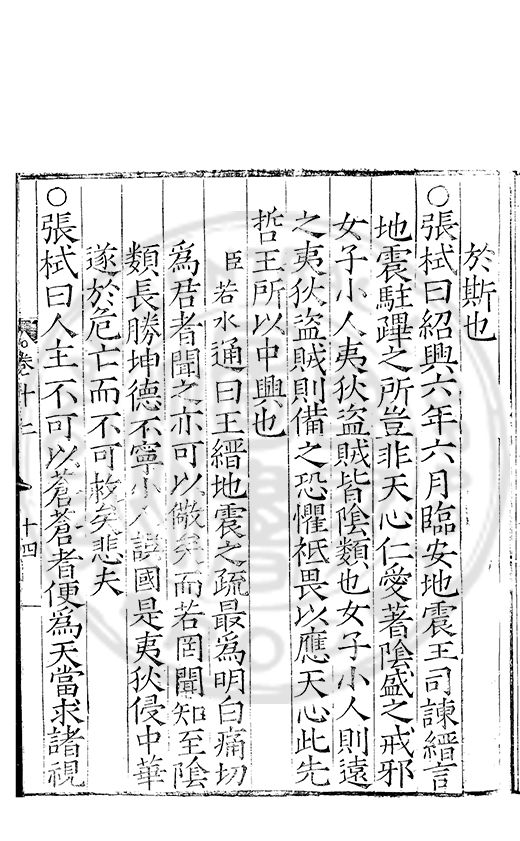 於斯也
○張栻曰紹興六年六月臨安地震王司諫縉言
地震駐蹕之所豈非天心仁愛著陰盛之戒邪
女子小人夷狄盜賊皆陰類也女子小人則遠
之夷狄盜賊則備之恐懼祗畏以應天心此先
哲王所以中興也
臣若水通曰王縉地震之疏最為明白痛切
為君者聞之亦可以儆矣而若罔聞知至陰
類長勝坤德不寧小人誤國是夷狄侵中華
遂於危亡而不可救矣悲夫
○張栻曰人主不可以蒼蒼者便為天當求諸視
卷十二
十四